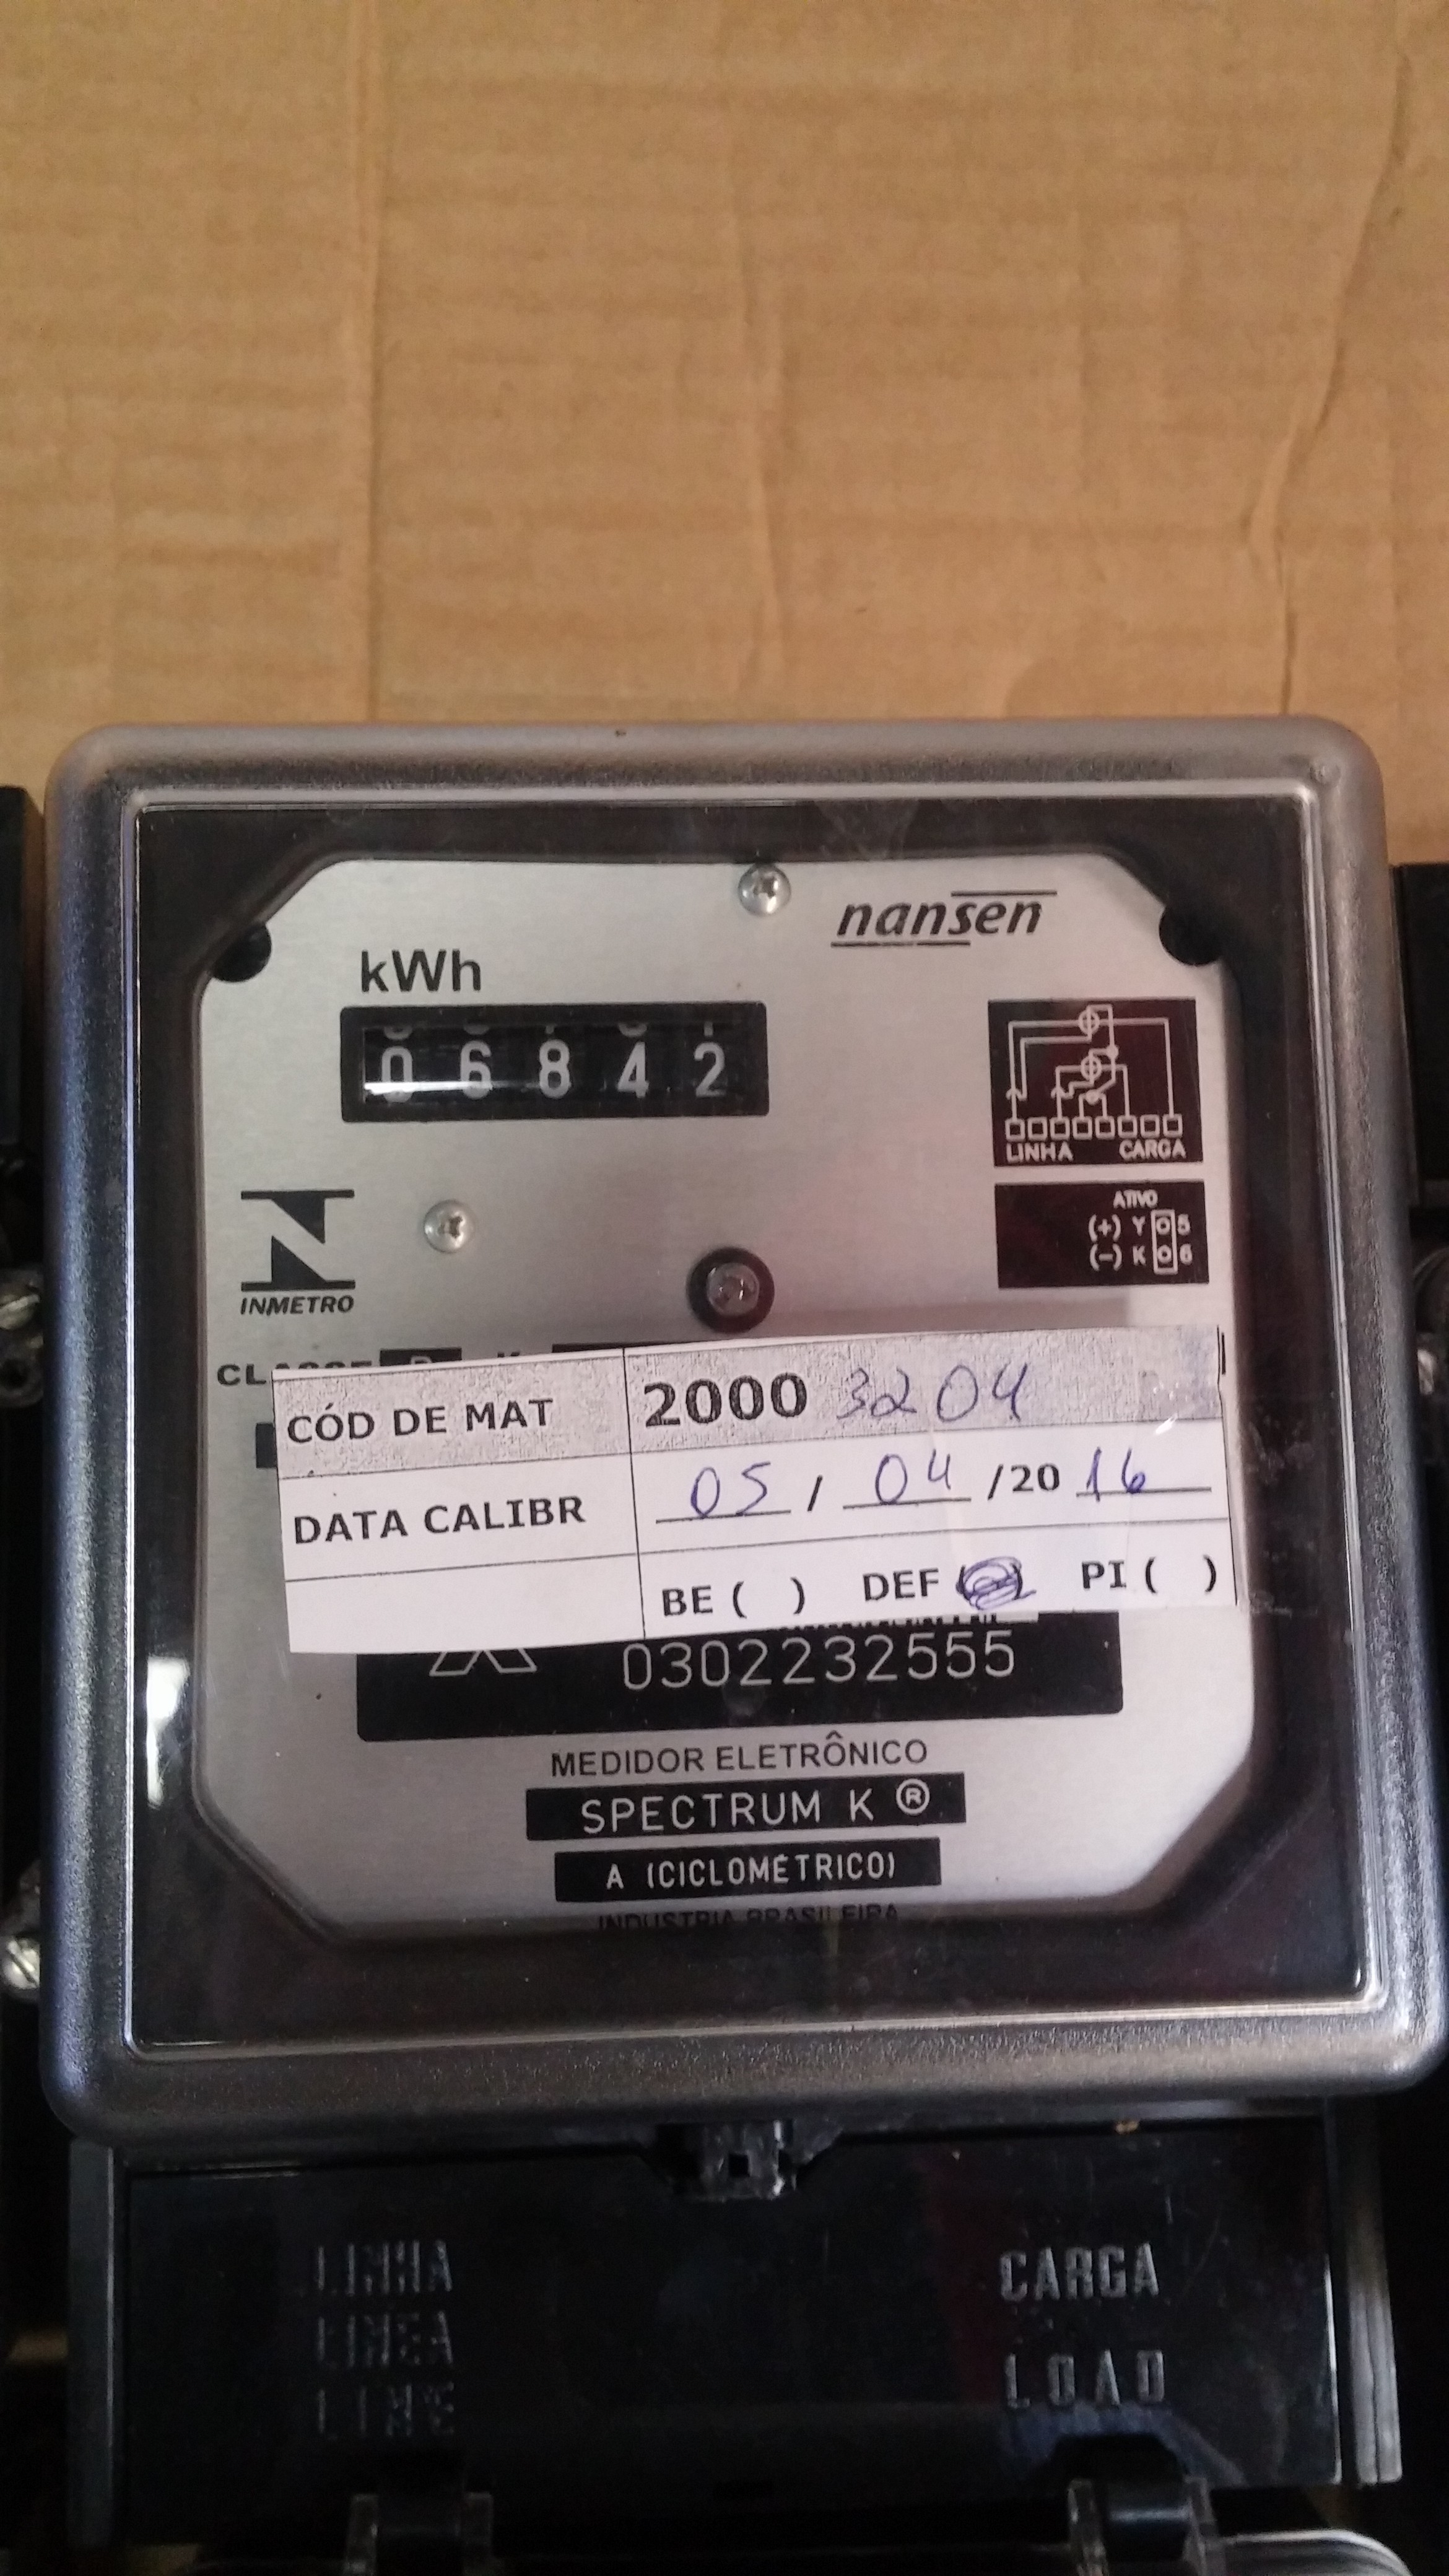 nansen
kWh
06842
LINHA CARGA
ATIVO
(+) Y 5
(-) K 6
INMETRO
CÓD DE MAT 2000 3204
DATA CALIBR 05 / 04 /20 16
BE ( ) DEF ( ) PI ( )
0302232555
MEDIDOR ELETRÔNICO
SPECTRUM K ®
A (CICLOMÉTRICO)
INDÚSTRIA BRASILEIRA
LINHA CARGA
LINEA
LINE LOAD